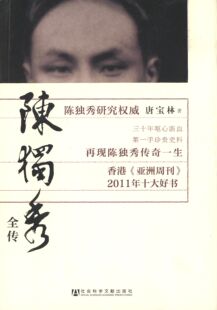 陈独秀研究权威 唐宝林 著
三十年呕心沥血
第一手珍贵史料
再现陈独秀传奇一生
香港《亚洲周刊》
2011年十大好书
陳獨秀
全传
社会科学文献出版社